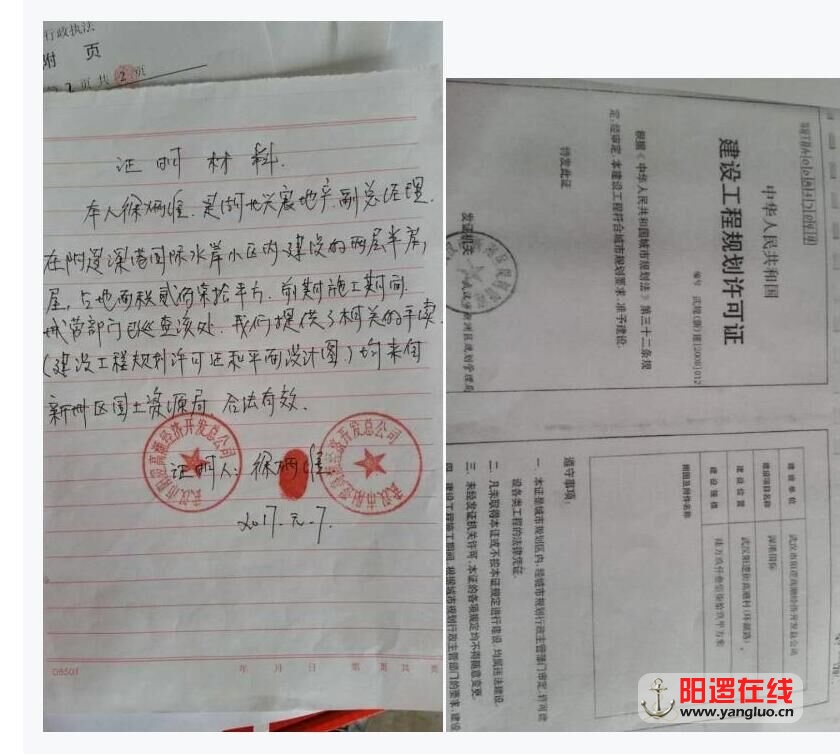 行政执法
附 页
页共2页
证明材料.
本人徐炳煌.是湖北兴宸地产副总经理.
在阳逻深港国际水岸小区内建设的两层半房
屋,占地面积贰佰柒拾平方.前期施工期间
城管部门已经查该处.我们提供了相关的手续
(建设工程规划许可证和平面设计图)均来自
新州区国土资源局.合法有效.
证明人:徐炳煌
2017.元.7.
武汉市阳逻高潮经济开发总公司
年 月 日 第 页 共 页
中华人民共和国
建设工程规划许可证
编号 武规(新)建[2008]012
根据《中华人民共和国城市规划法》第三十二条规
定,经审定,本建设工程符合城市规划要求,准予建设。
特发此证
发证机关
武汉市新洲区规划管理局
建设单位 武汉市阳逻高潮经济开发总公司
建设项目名称 深港国际
建设位置 武汉阳逻街高潮村(环湖路)、
建设规模 陆万玖仟叁佰柒拾玖平方米
附图及附件名称
遵守事项:
一、本证是城市规划区内,经城市规划行政主管部门审定,许可建
设各类工程的法律凭证。
二、凡未取得本证或不按本证规定进行建设,均属违法建设。
三、未经发证机关许可,本证的各项规定均不得随意变更。
四、建设工程施工期间,根据城市规划行政主管部门的要求,建设
阳逻在线
www.yangluo.cn